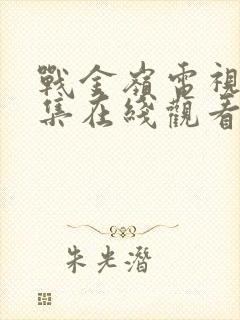 戰金嶺電視
集在綫觀看
朱光潛